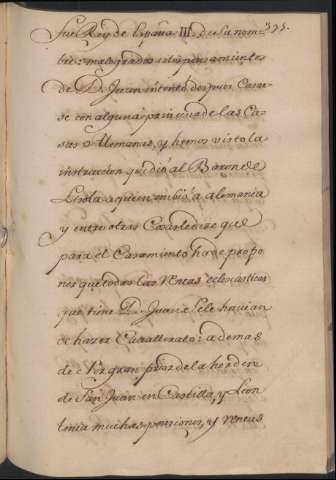 fue Rey de España III de su nom- 395.
bre: malogrados estos pensamientos
de D. Juan intentó despues Casar-
se con alguna princesa de las Ca-
sas Alemanas, y hemos visto la
instruccion que dió al Baron de
Lisola a quien imbió a alemania
y entre otras Cosas le dise que
para el Casamiento ha de propo-
ner que todas las Rentas eclesiasticas
que tiene D. Juan se le havian
de hazer Cavallerato: ademas
de ser gran prior de la horden
de San Juan en Castilla, y Leon
tenia muchas pensiones, y Rentas